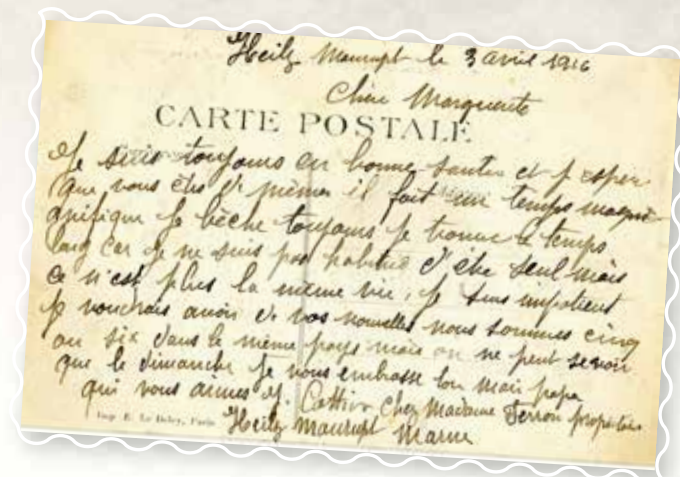 Heilz Maurupt le 3 avril 1916
Chère Marguerite
CARTE POSTALE
Je suis toujours en bonne santer et j'esper
que vous ête de mêmes il fait un temps magni-
gnifique je bèche toujours je trouve le temps
long car je ne suis pas habitué d'être seul mais
ce n'est plus la même vie, je suis impatient
je voudrais avoir de vos nouvelles nous sommes cinq
ou six dans le même pays mais on ne peut se voir
que le dimanche je vous embrasse ton mari papa
qui vous aimes J. Cottin chez Madame Ferron propriétaire
Imp. E. Le Deley, Paris
Heilz Maurupt Marne